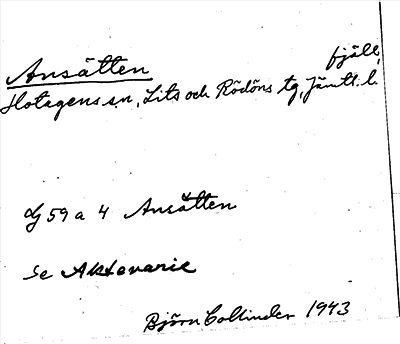 Ansätten fjäll,
Hotagens sn, Lits och Rödöns tg, Jämtl. l.
dj 59 a 4 Ansätten
Se Aktavarie
Björn Collinder 1943